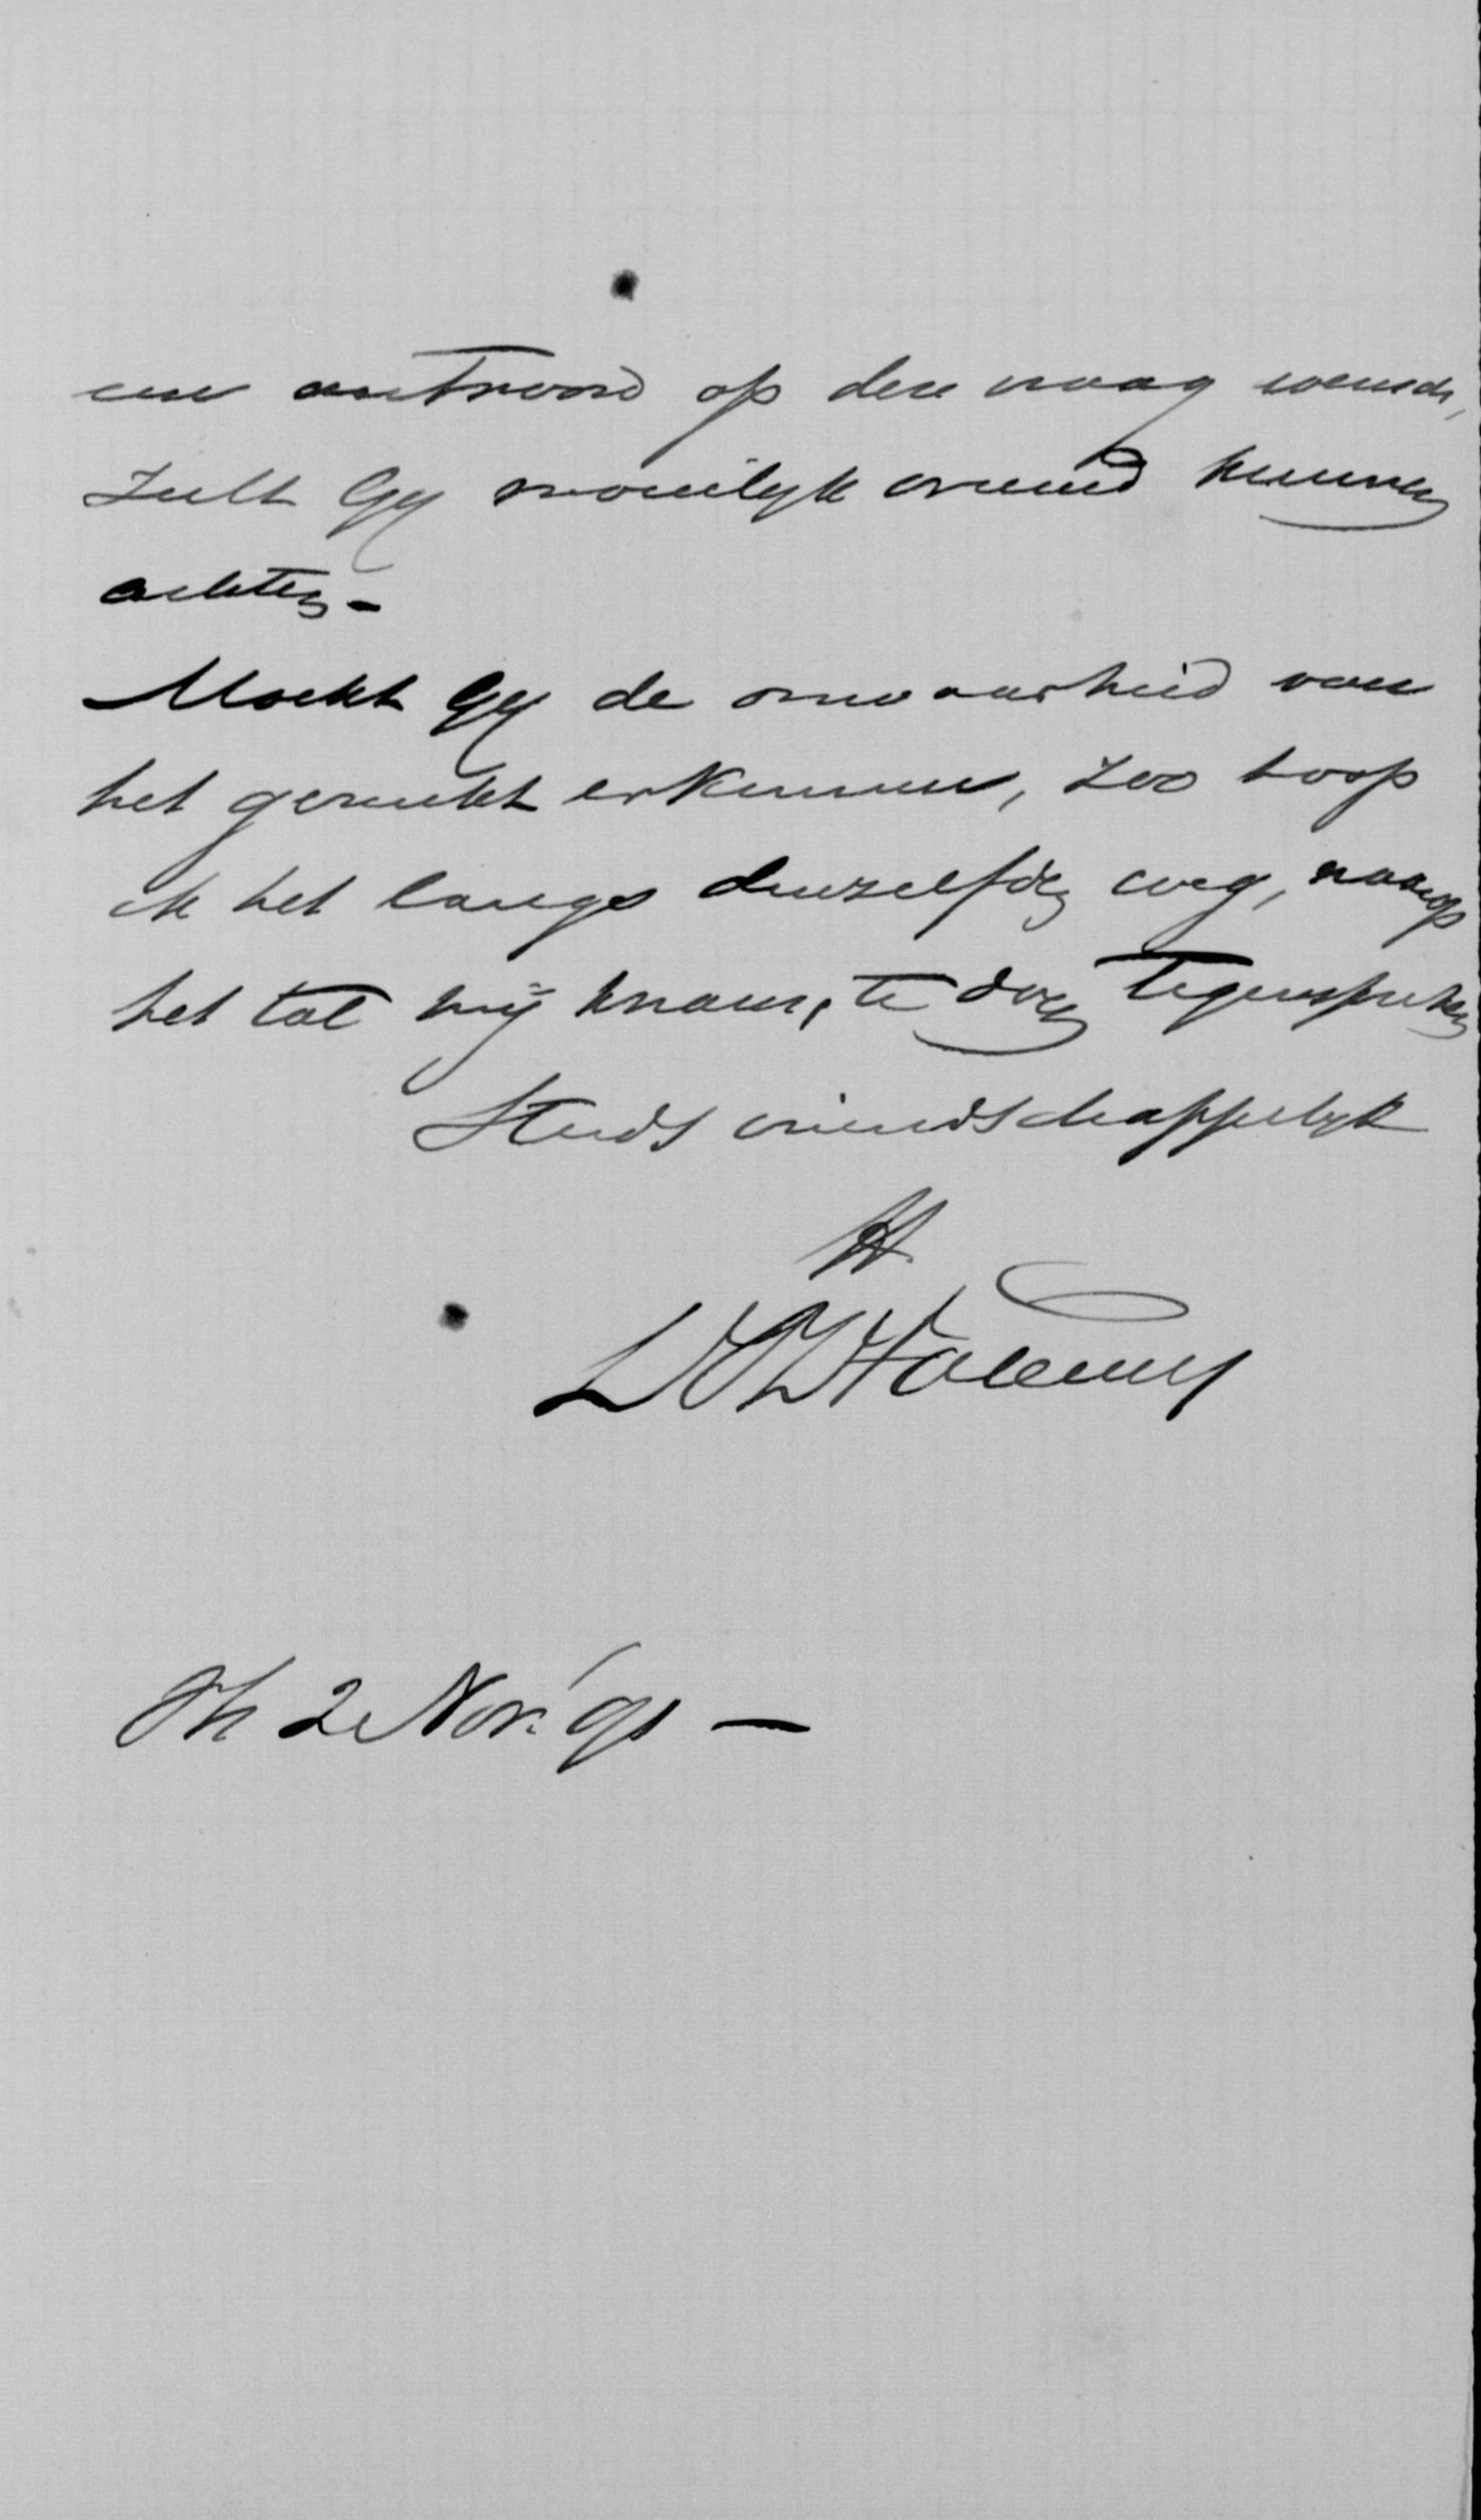 een antwoord op deze vraag wensch,
zult Gy moeilyk vreemd kunnen
achten -
Mocht Gy de onwaarheid van
het gerucht erkennen, zoo hoop
ik het langs denzelfden weg, waarop
het tot mij kwam, te doen tegenspreken
Steeds vriendschappelyk
tt.
Sh 2 Nov. '91 —